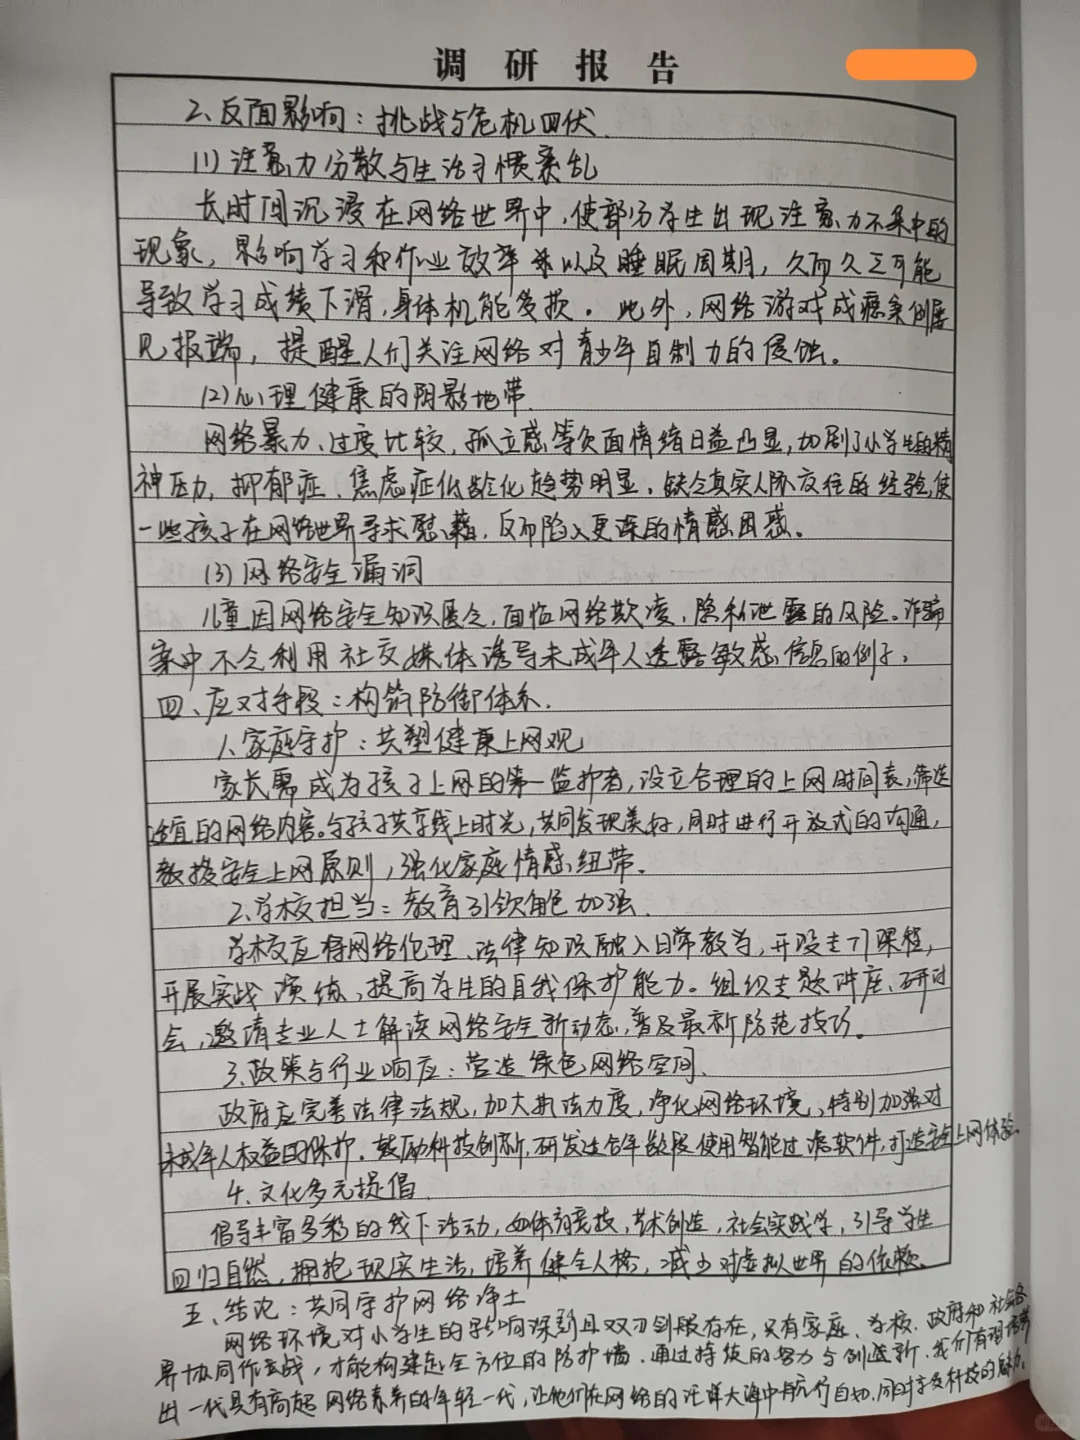 调研报告
2、反面影响：挑战与危机四伏.
(1)注意力分散与生活习惯紊乱
长时间沉浸在网络世界中,使部分学生出现注意力不集中的
现象，影响学习和作业效率以及睡眠周期，久而久之可能
导致学习成绩下滑,身体机能受损。此外,网络游戏成瘾案例屡
见报端，提醒人们关注网络对青少年自制力的侵蚀。
(2)心理健康的阴影地带.
网络暴力、过度比较，孤立感等负面情绪日益凸显,加剧了小学生的精
神压力，抑郁症、焦虑症低龄化趋势明显。缺乏真实人际交往的经验,使
一些孩子在网络世界寻求慰藉，反而陷入更深的情感困惑。
(3)网络安全漏洞
儿童因网络安全知识匮乏,面临网络欺凌,隐私泄露的风险。诈骗
案中不乏利用社交媒体诱导未成年人透露敏感信息的例子。
四、应对手段：构筑防御体系.
1、家庭守护：共塑健康上网观
家长需成为孩子上网的第一监护者,设立合理的上网时间表,筛选
适宜的网络内容。与孩子共享线上时光,共同发现美好,同时进行开放式的沟通,
教授安全上网原则,强化家庭情感纽带.
2、学校担当：教育引领角色加强.
学校应将网络伦理、法律知识融入日常教学,开设专门课程,
开展实战演练,提高学生的自我保护能力。组织专题讲座、研讨
会,邀请专业人士解读网络安全新动态,普及最新防范技巧。
3、政策与行业响应：营造绿色网络空间.
政府应完善法律法规,加大执法力度,净化网络环境,特别加强对
未成年人权益的保护。鼓励科技创新,研发适合年龄段使用智能过滤软件,打造安全上网体验.
4、文化多元提倡.
倡导丰富多彩的线下活动,如体育竞技,艺术创造,社会实践学,引导学生
回归自然,拥抱现实生活,培养健全人格,减少对虚拟世界的依赖.
五、结论：共同守护网络净土
网络环境对小学生的影响深刻且双刀剑般存在,只有家庭、学校、政府和社会各
界协同作战,才能构建起全方位的防护墙.通过持续的努力与创造新,我们有望培养
出一代具有高起网络素养的年轻一代,让他们在网络的汪洋大海中航行自如,同时享受科技的魅力.
小红书